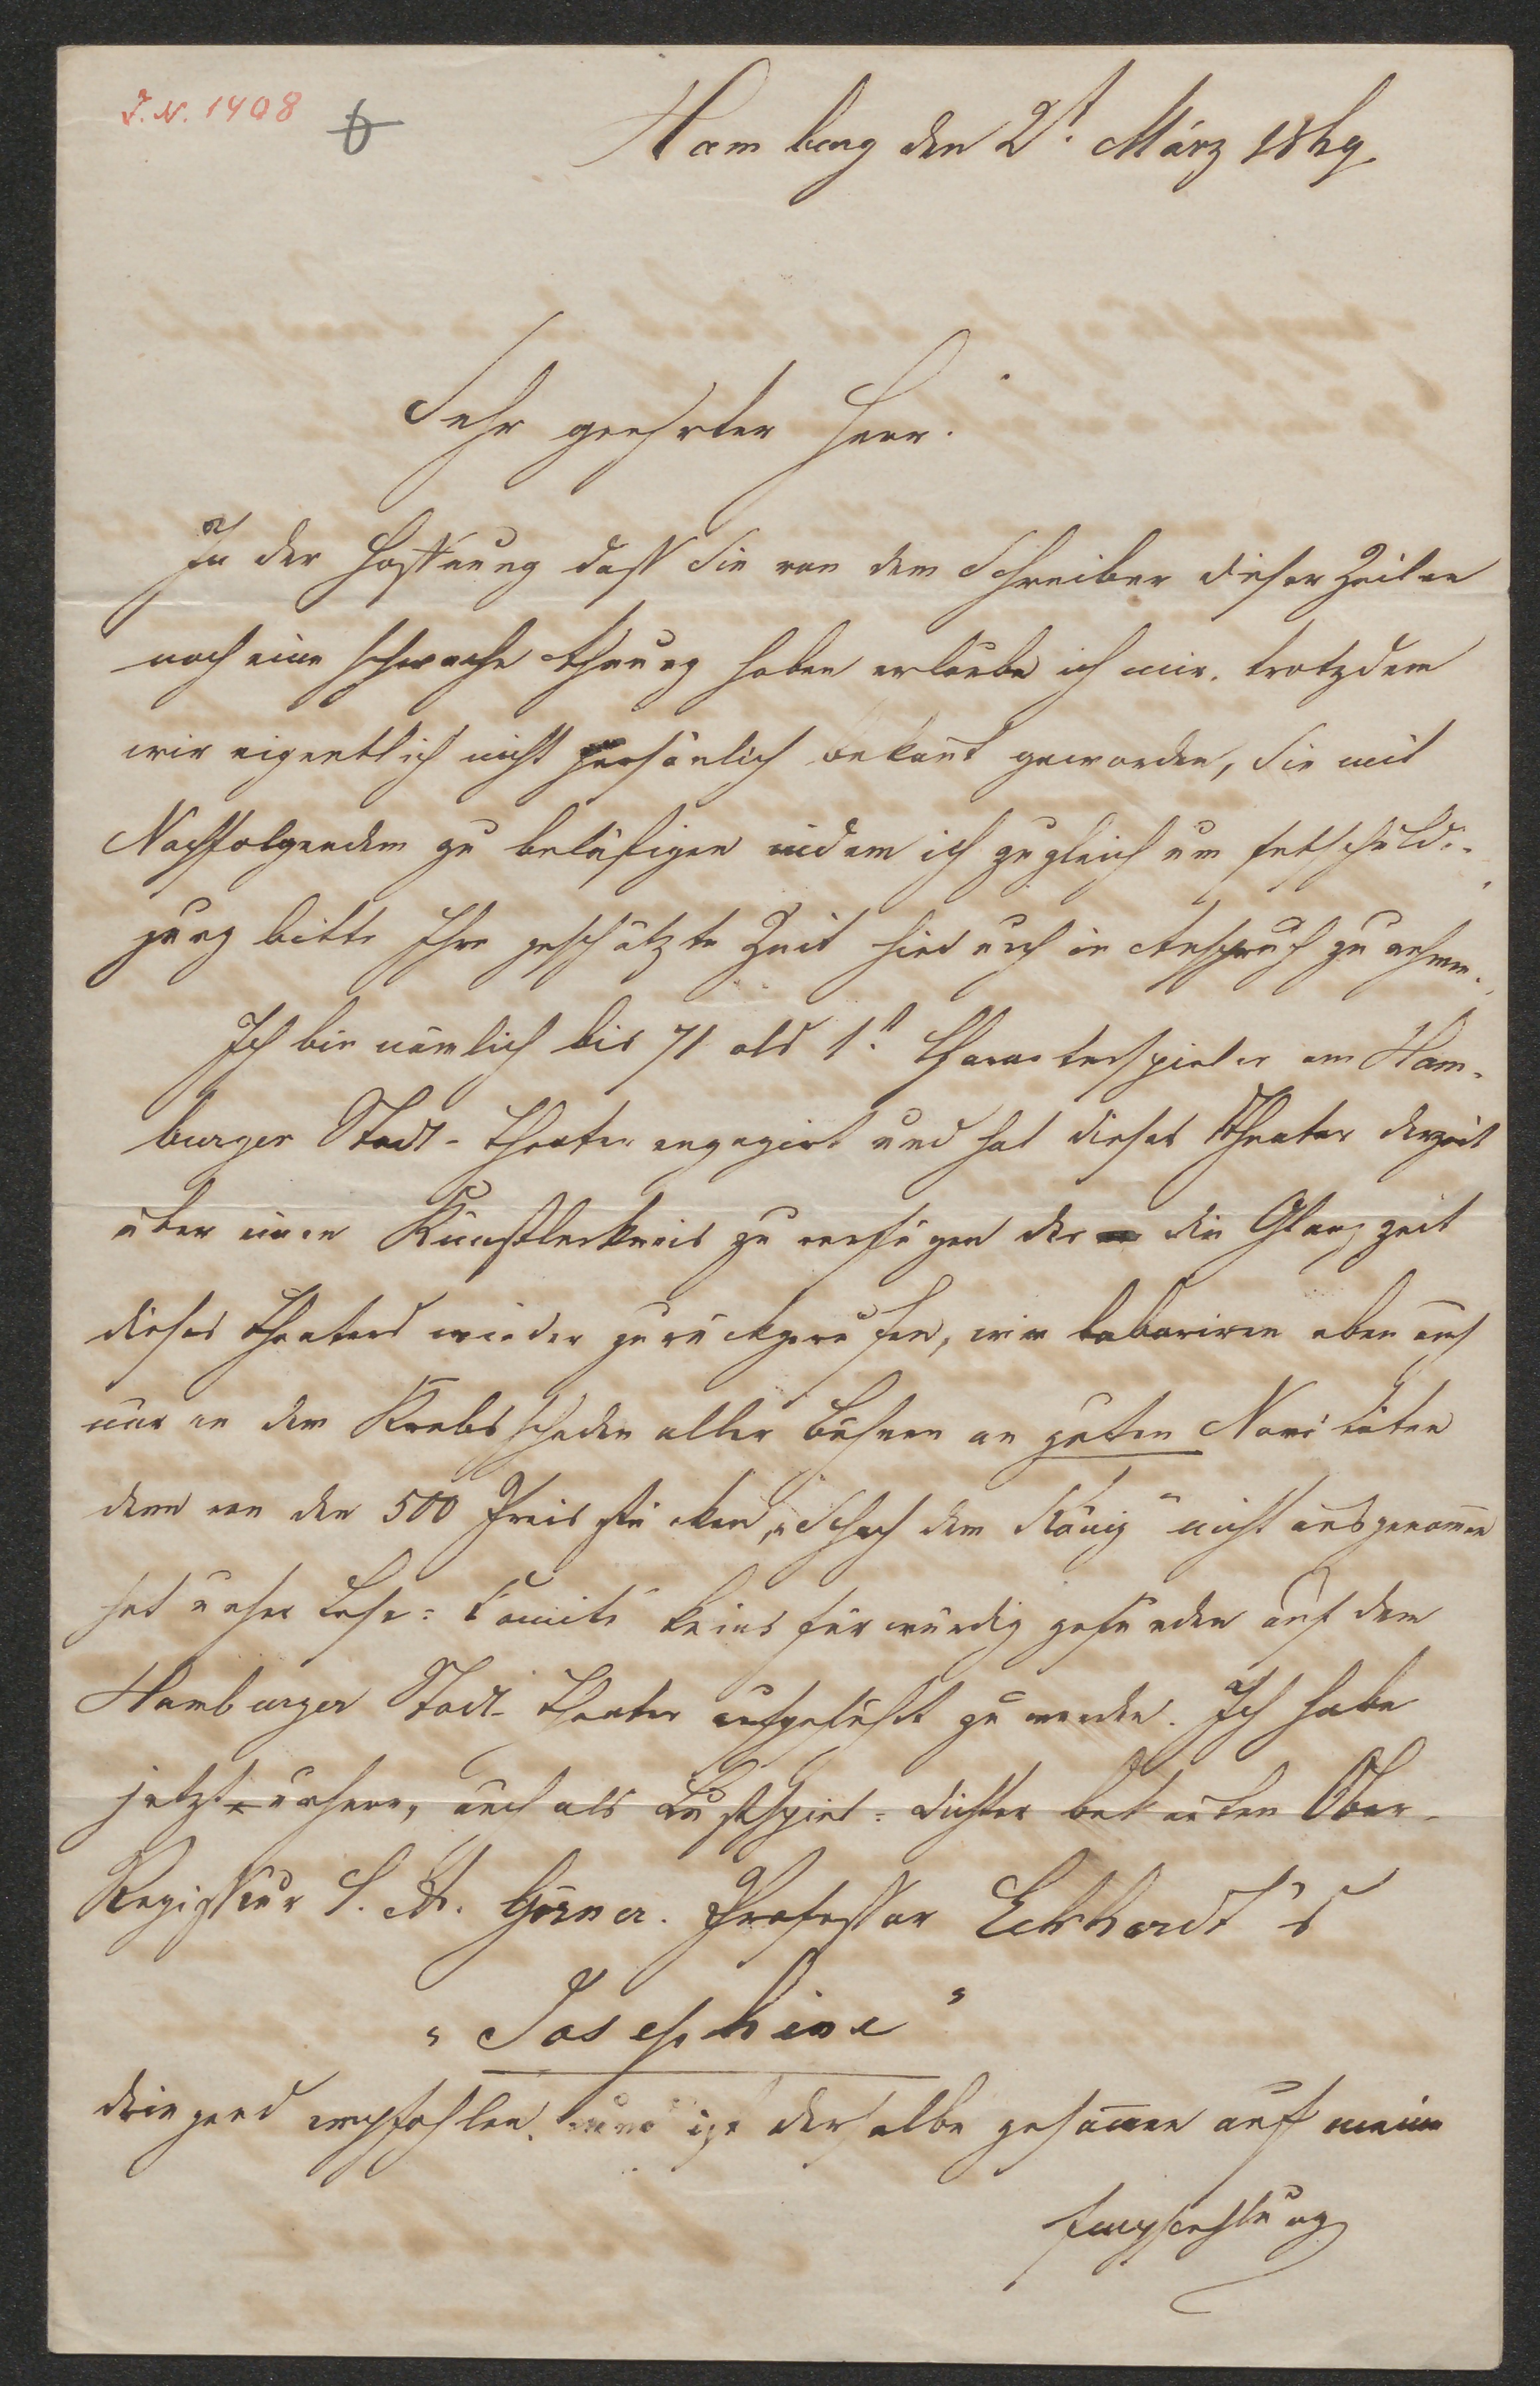 J. N. 1408
Hamburg den 2t. März 1869.
Sehr geehrter Herr.
In der Hoffnung daß Sie von dem Schreiber dieser Zeilen
noch eine schwache Ahnung haben erlaube ich mir, trotzdem
wir eigentlich nicht persönlich bekañt geworden, Sie mit
Nachfolgendem zu belästigen indem ich zugleich um Entschuldi-
gung bitte Ihre geschätzte Zeit hiedurch in Anspruch zu nehmen.
Ich bin nämlich bis 71 als 1t. Charakterspieler am Ham-
burger Stadt-Theater engagirt und hat dieses Theater derzeit
über einen Künstlerkreis zu verfügen der die Glanzzeit
dieses Theaters wieder zurückgerufen, wir laboriren eben auch
nur an dem Krebsschaden aller Bühnen an guten Novitäten
denn von den 500 Preisstücken, „Schach dem König" nicht ausgenom̄en
hat unser Lese=Comité keins für würdig gefunden auf dem
Hamburger Stadt-Theater aufgeführt zu werden. Ich habe
jetzt unserm, auch als Lustspiel=dichter bekañten Ober-
Regisseur C. A. Görner. Professor Eckhardt's
„Josephine"
dringend empfohlen, und ist derselbe gesonnen auf meine
Empfehlung